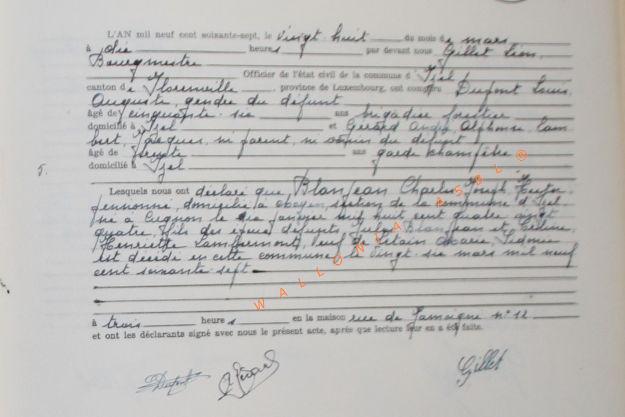 L'AN mil neuf cent soixante-sept, le vingt huit du mois de mars
à dix heures par devant nous Gillet Léon,
Bourgmestre
Officier de l'état civil de la commune d'Izel
canton de Florenville, province de Luxembourg, ont comparu Dupont Louis,
Auguste, gendre du défunt
âgé de cinquante six ans brigadier forestier
domicilié à Izel et Gérard André Alphonse Lam-
bert, Jacques, ni parent, ni voisin du défunt
âgé de trente ans garde champêtre
domicilié à Izel
5.
Lesquels nous ont déclaré que, Blanjean Charles Joseph
pensionné, domicilié à section de la commune d'Izel
né à Cugnon le dix janvier mil huit cent quatre vingt
quatre, fils des époux défunts Jules Blanjean et
Henriette Lambermont, veuf de Gélain Maria, Sidonie
est décédé en cette commune, le vingt six mars mil neuf
cent soixante sept
à trois heures en la maison rue de Jamoigne n° 12
et ont les déclarants signé avec nous le présent acte, après que lecture leur en a été faite.
LDupont Gérard Gillet
WALLONICA ASBL ©